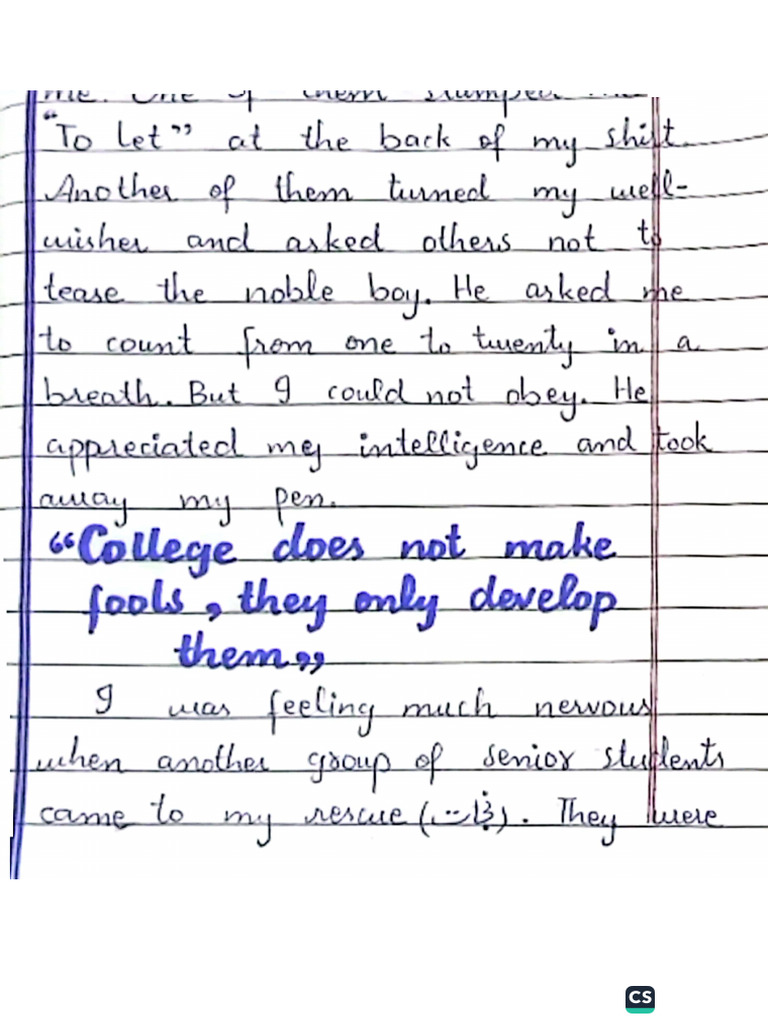 me. One of them stamped me
"To let" at the back of my shirt.
Another of them turned my well-
wisher and asked others not to
tease the noble boy. He asked me
to count from one to twenty in a
breath. But I could not obey. He
appreciated my intelligence and took
away my pen.
"College does not make
fools, they only develop
them"
I was feeling much nervous
when another group of senior students
came to my rescue (نجات). They were
CS